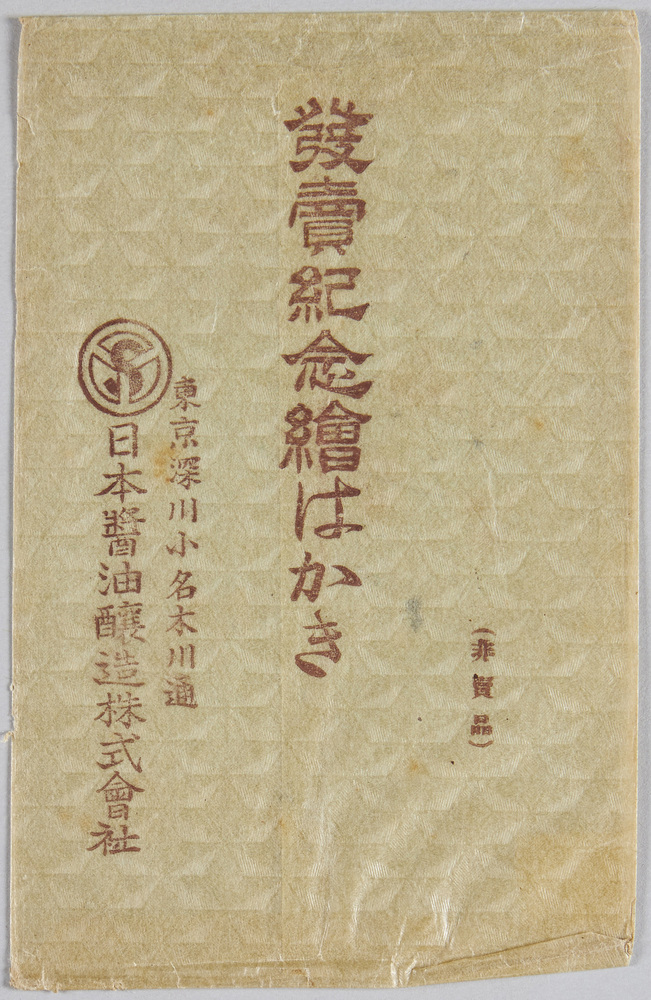 (非賣品)
發賣紀念繪はかき
東京深川小名木川通
日本醬油釀造株式會社